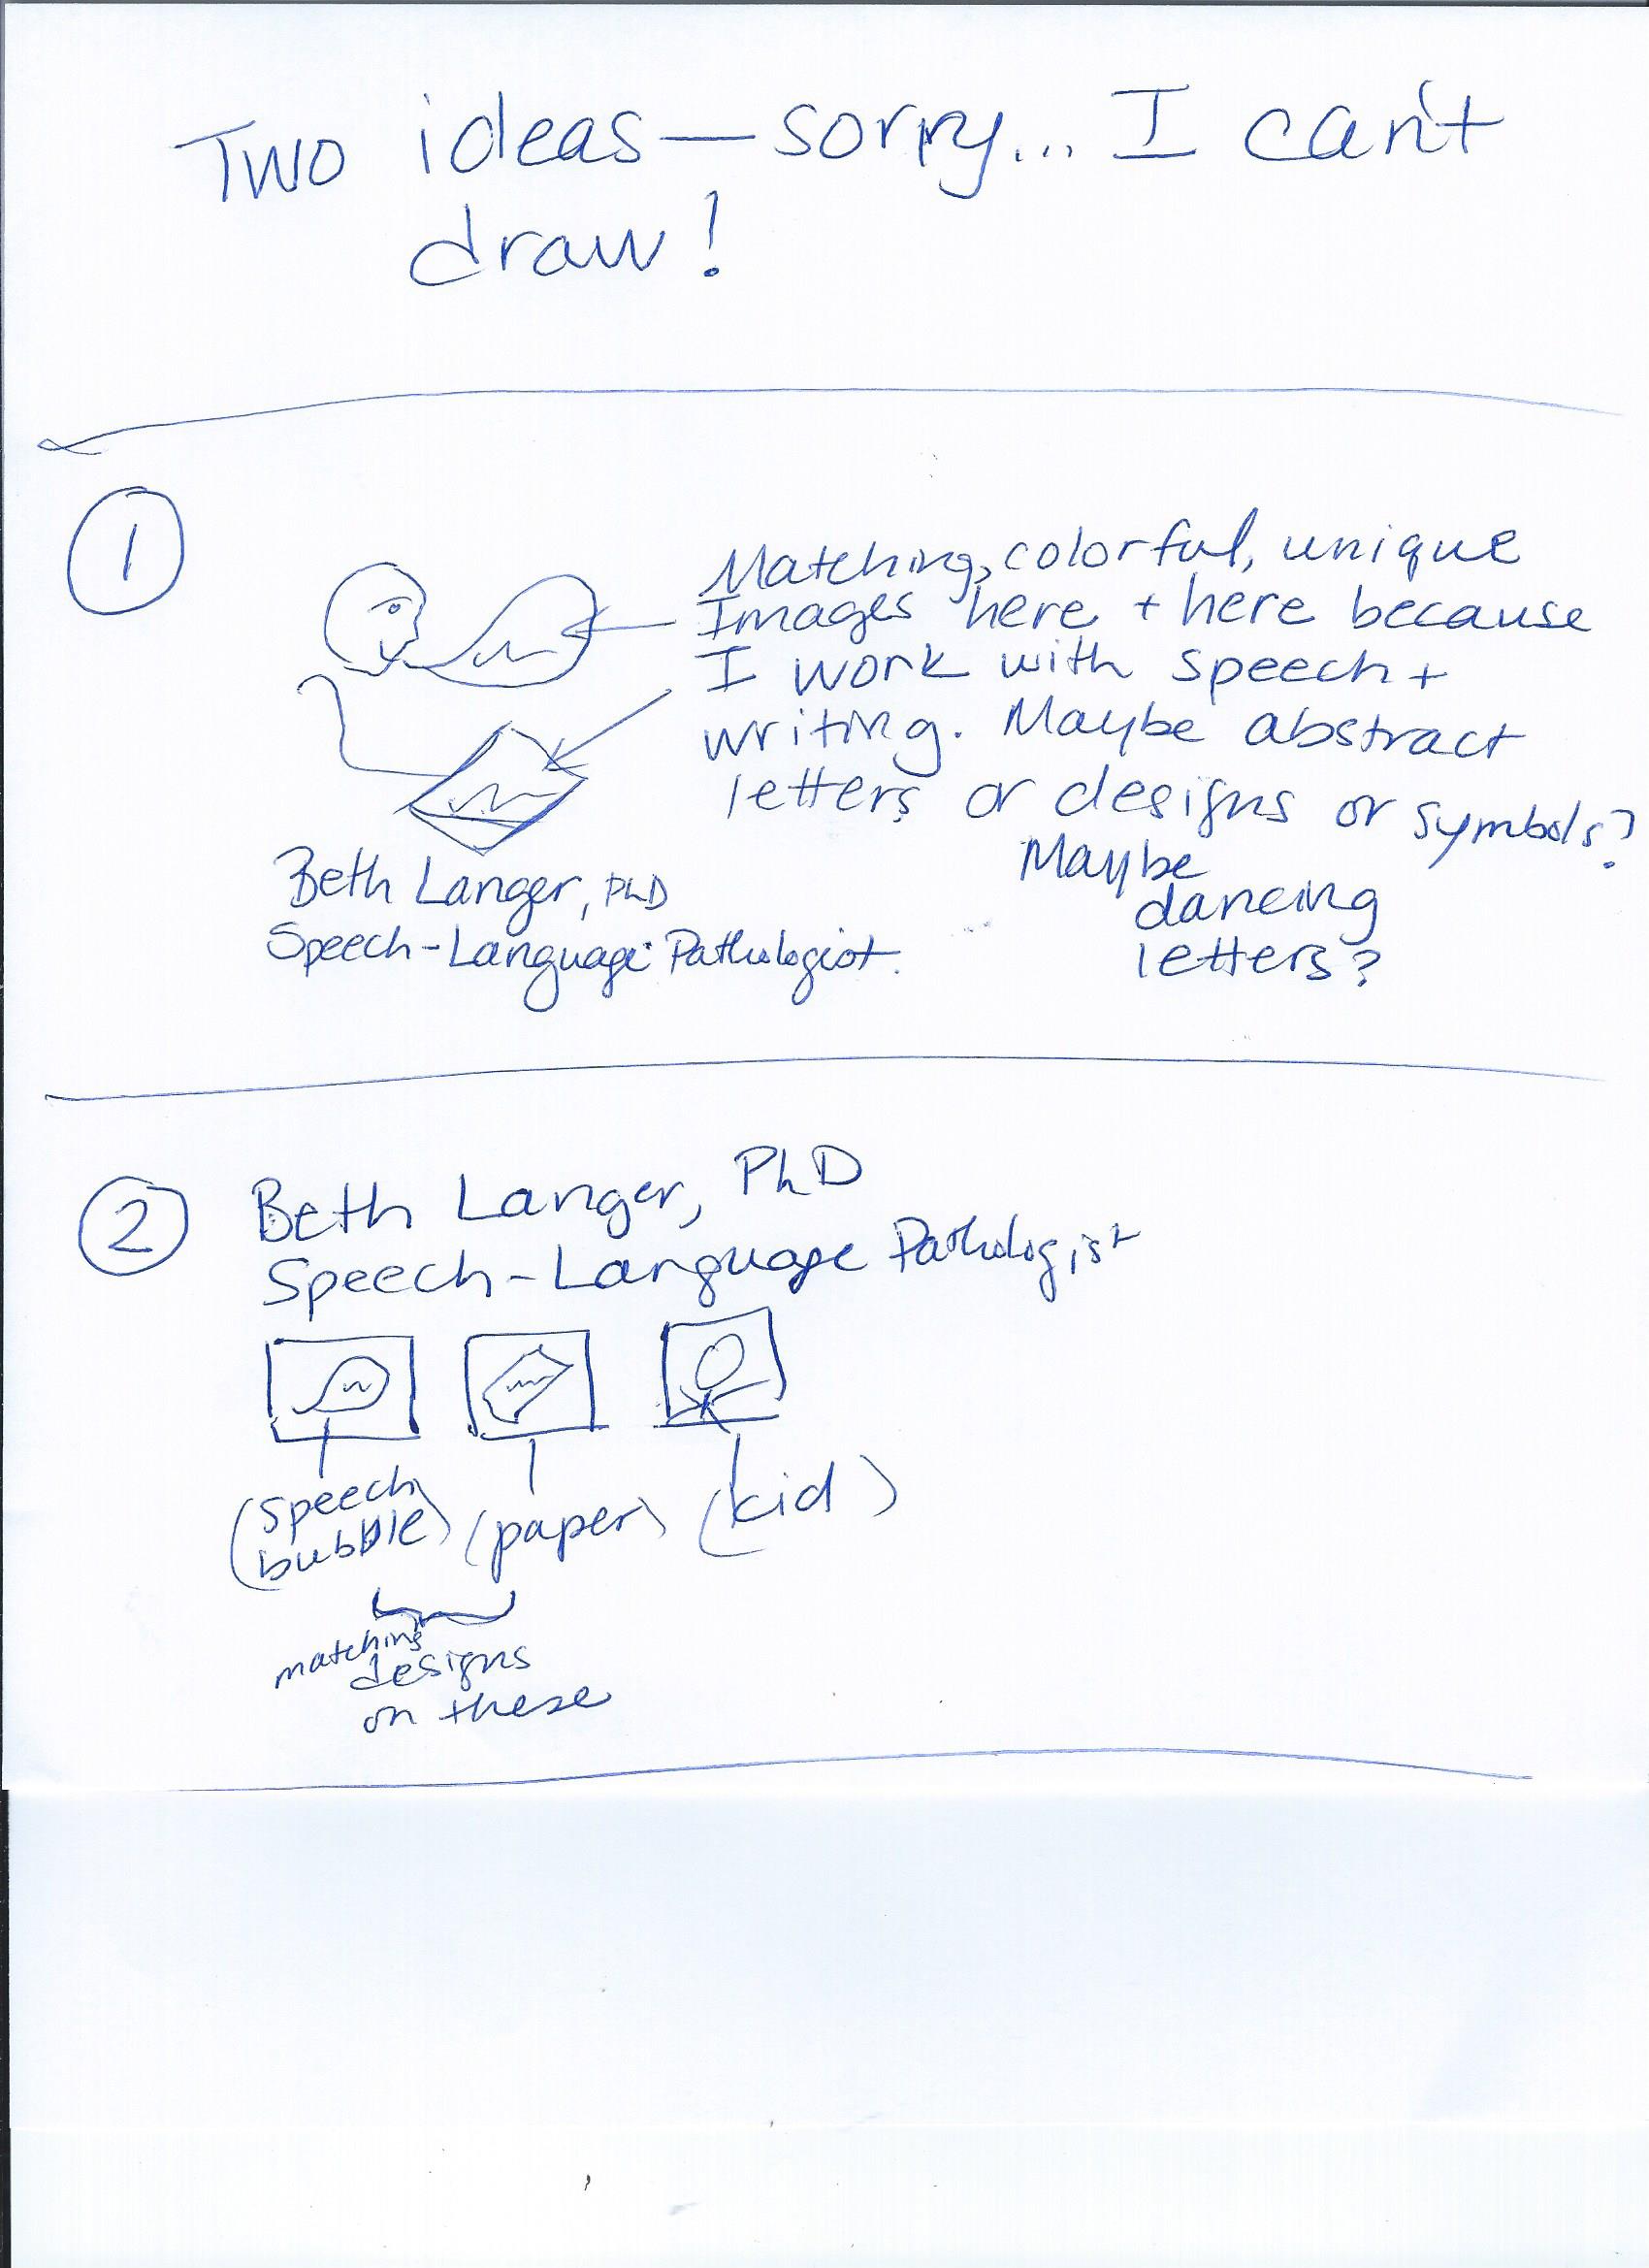 Two ideas — sorry... I can't
draw!
1
Matching, colorful, unique
Images here + here because
I work with speech +
writing. Maybe abstract
letters or designs or symbols?
Maybe
dancing
letters?
Beth Langer, PhD
Speech-Language Pathologist.
2
Beth Langer, PhD
Speech-Language Pathologist
(speech
bubble) (paper) (kid)
matching
designs
on these